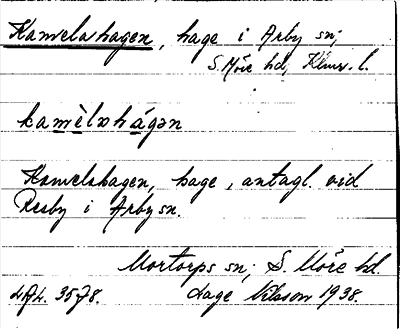 Kamelshagen, hage i Arby sn;
S. Möre hd, Klmr. l.
kamèlshágən
Kamelshagen, hage, antagl. vid
Resby i Arby sn.
Mortorps sn; S. Möre hd.
LAL. 3578. Lage Nilsson 1938.